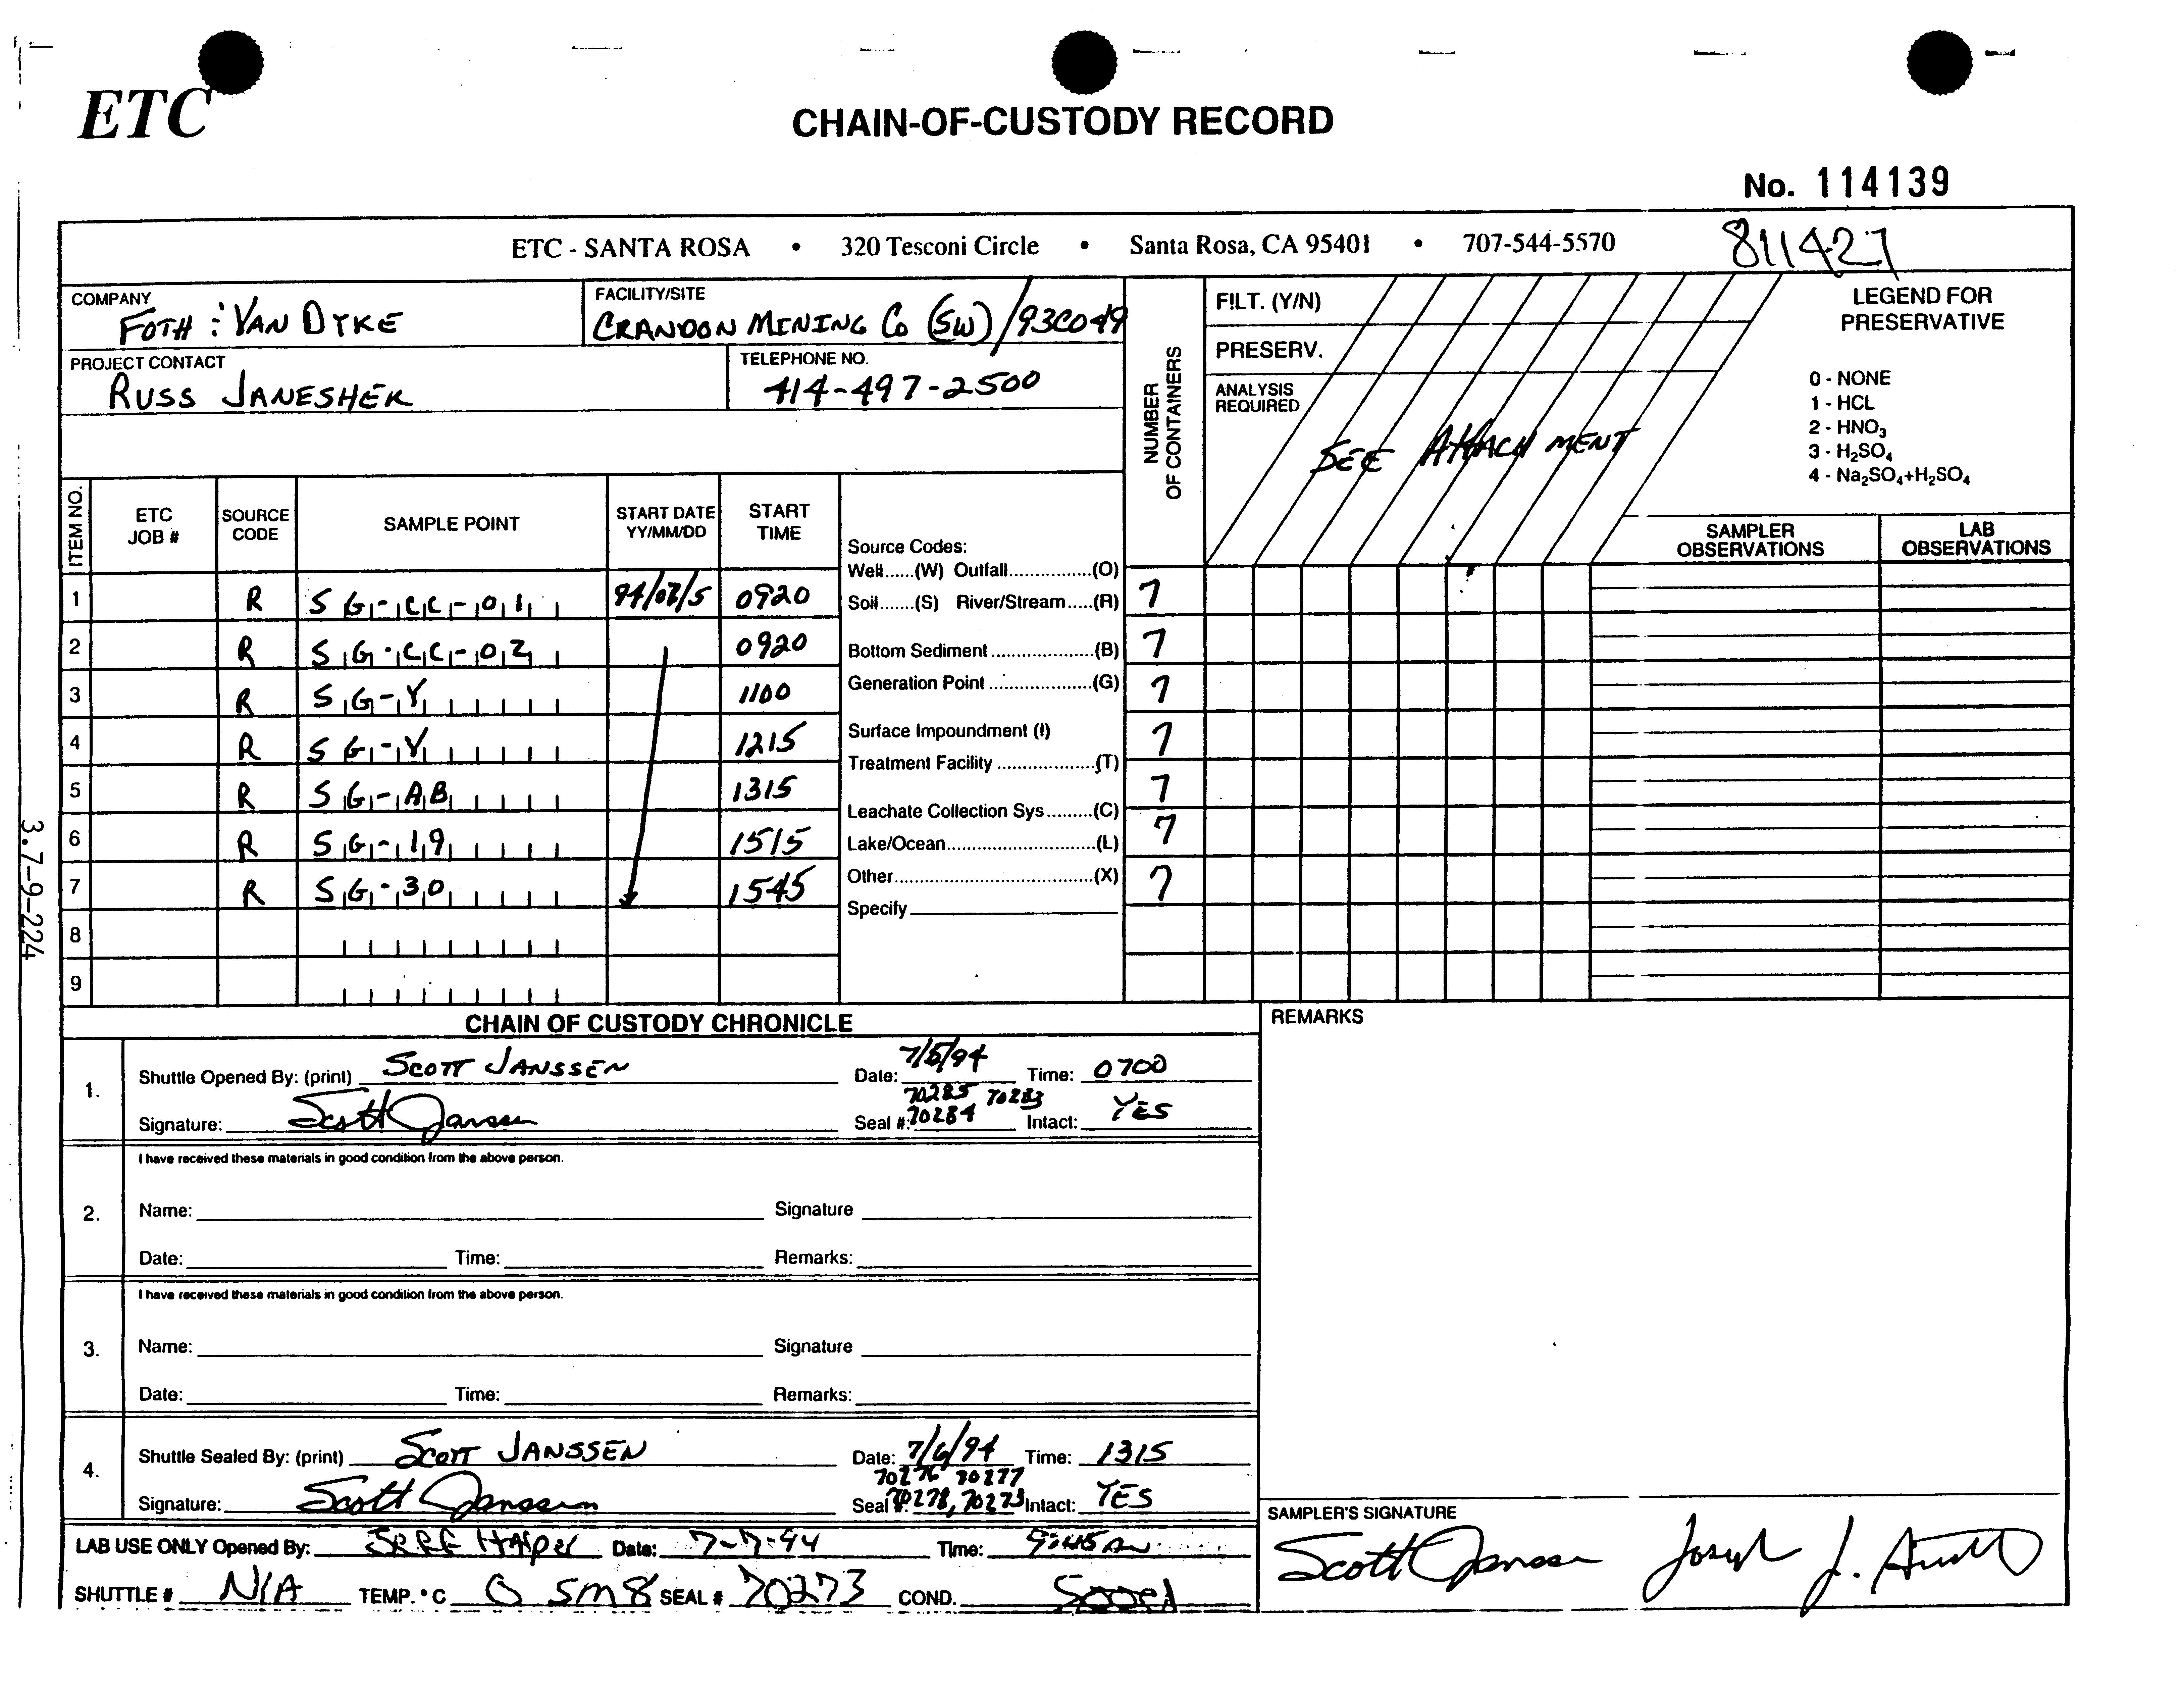 ETC
CHAIN-OF-CUSTODY RECORD
No. 114139
ETC - SANTA ROSA • 320 Tesconi Circle • Santa Rosa, CA 95401 • 707-544-5570
811427
COMPANY
FOTH : VAN DYKE
FACILITY/SITE
CRANDON MINING CO (SW) / 93C049
PROJECT CONTACT
RUSS JANESHEK
TELEPHONE NO.
414-497-2500
NUMBER OF CONTAINERS
FILT. (Y/N)
PRESERV.
ANALYSIS REQUIRED
SEE ATTACHMENT
LEGEND FOR
PRESERVATIVE
0 - NONE
1 - HCL
2 - HNO3
3 - H2SO4
4 - Na2SO4+H2SO4
ITEM NO. ETC JOB # SOURCE CODE SAMPLE POINT START DATE YY/MM/DD START TIME
SAMPLER OBSERVATIONS LAB OBSERVATIONS
1 R SG-CC-01 94/07/5 0920 7
2 R SG-CC-02 0920 7
3 R SG-Y 1100 7
4 R SG-V 1215 7
5 R SG-AB 1315 7
6 R SG-19 1515 7
7 R SG-30 1545 7
8
9
Source Codes:
Well......(W) Outfall...............(O)
Soil.......(S) River/Stream.....(R)
Bottom Sediment...................(B)
Generation Point...................(G)
Surface Impoundment (I)
Treatment Facility..................(T)
Leachate Collection Sys.........(C)
Lake/Ocean...........................(L)
Other....................................(X)
Specify
CHAIN OF CUSTODY CHRONICLE
1. Shuttle Opened By: (print) SCOTT JANSSEN Date: 7/5/94 Time: 0700
70285 70283
Signature: Scott Janssen Seal #: 70284 Intact: YES
I have received these materials in good condition from the above person.
2. Name: Signature
Date: Time: Remarks:
I have received these materials in good condition from the above person.
3. Name: Signature
Date: Time: Remarks:
4. Shuttle Sealed By: (print) SCOTT JANSSEN Date: 7/6/94 Time: 1315
70276 70277
Signature: Scott Janssen Seal #: 70278, 70273 Intact: YES
LAB USE ONLY Opened By: Date: 7-7-94 Time: 9:45 AM
SHUTTLE # N/A TEMP. °C 0 SEAL # 70273 COND. Good
REMARKS
SAMPLER'S SIGNATURE
Scott Janssen Joseph J.
3.7-9-224